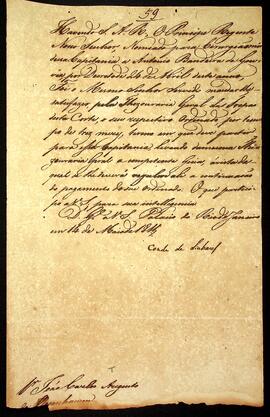 59
Havendo S. A. R. O Principe Regente
Nosso Senhor, Nomeado para
dessa Capitania a Antonio Bandeira de Gou-
vea por Decreto de 26 de Abril deste anno,
Foi o Mesmo Senhor Servido mandar lhe
satisfazer pela Thezouraria Geral das Tropas
desta Corte, o seu respectivo Ordenado por tem-
po de dez mezes, tempo em que deve partir
para essa Capitania, levando da mesma The-
zouraria Geral a competente Guia, á vista da
qual se lhe deverá regular ahi a continuação
do pagamento do seu Ordenado. O que partici-
po a V. S. para sua intelligencia
D. G.e a V. S. Palacio do Rio de Janeiro
em 14 de Maio de 1814
Conde de
S.r João Carlos Augusto
d'Oyenhausen